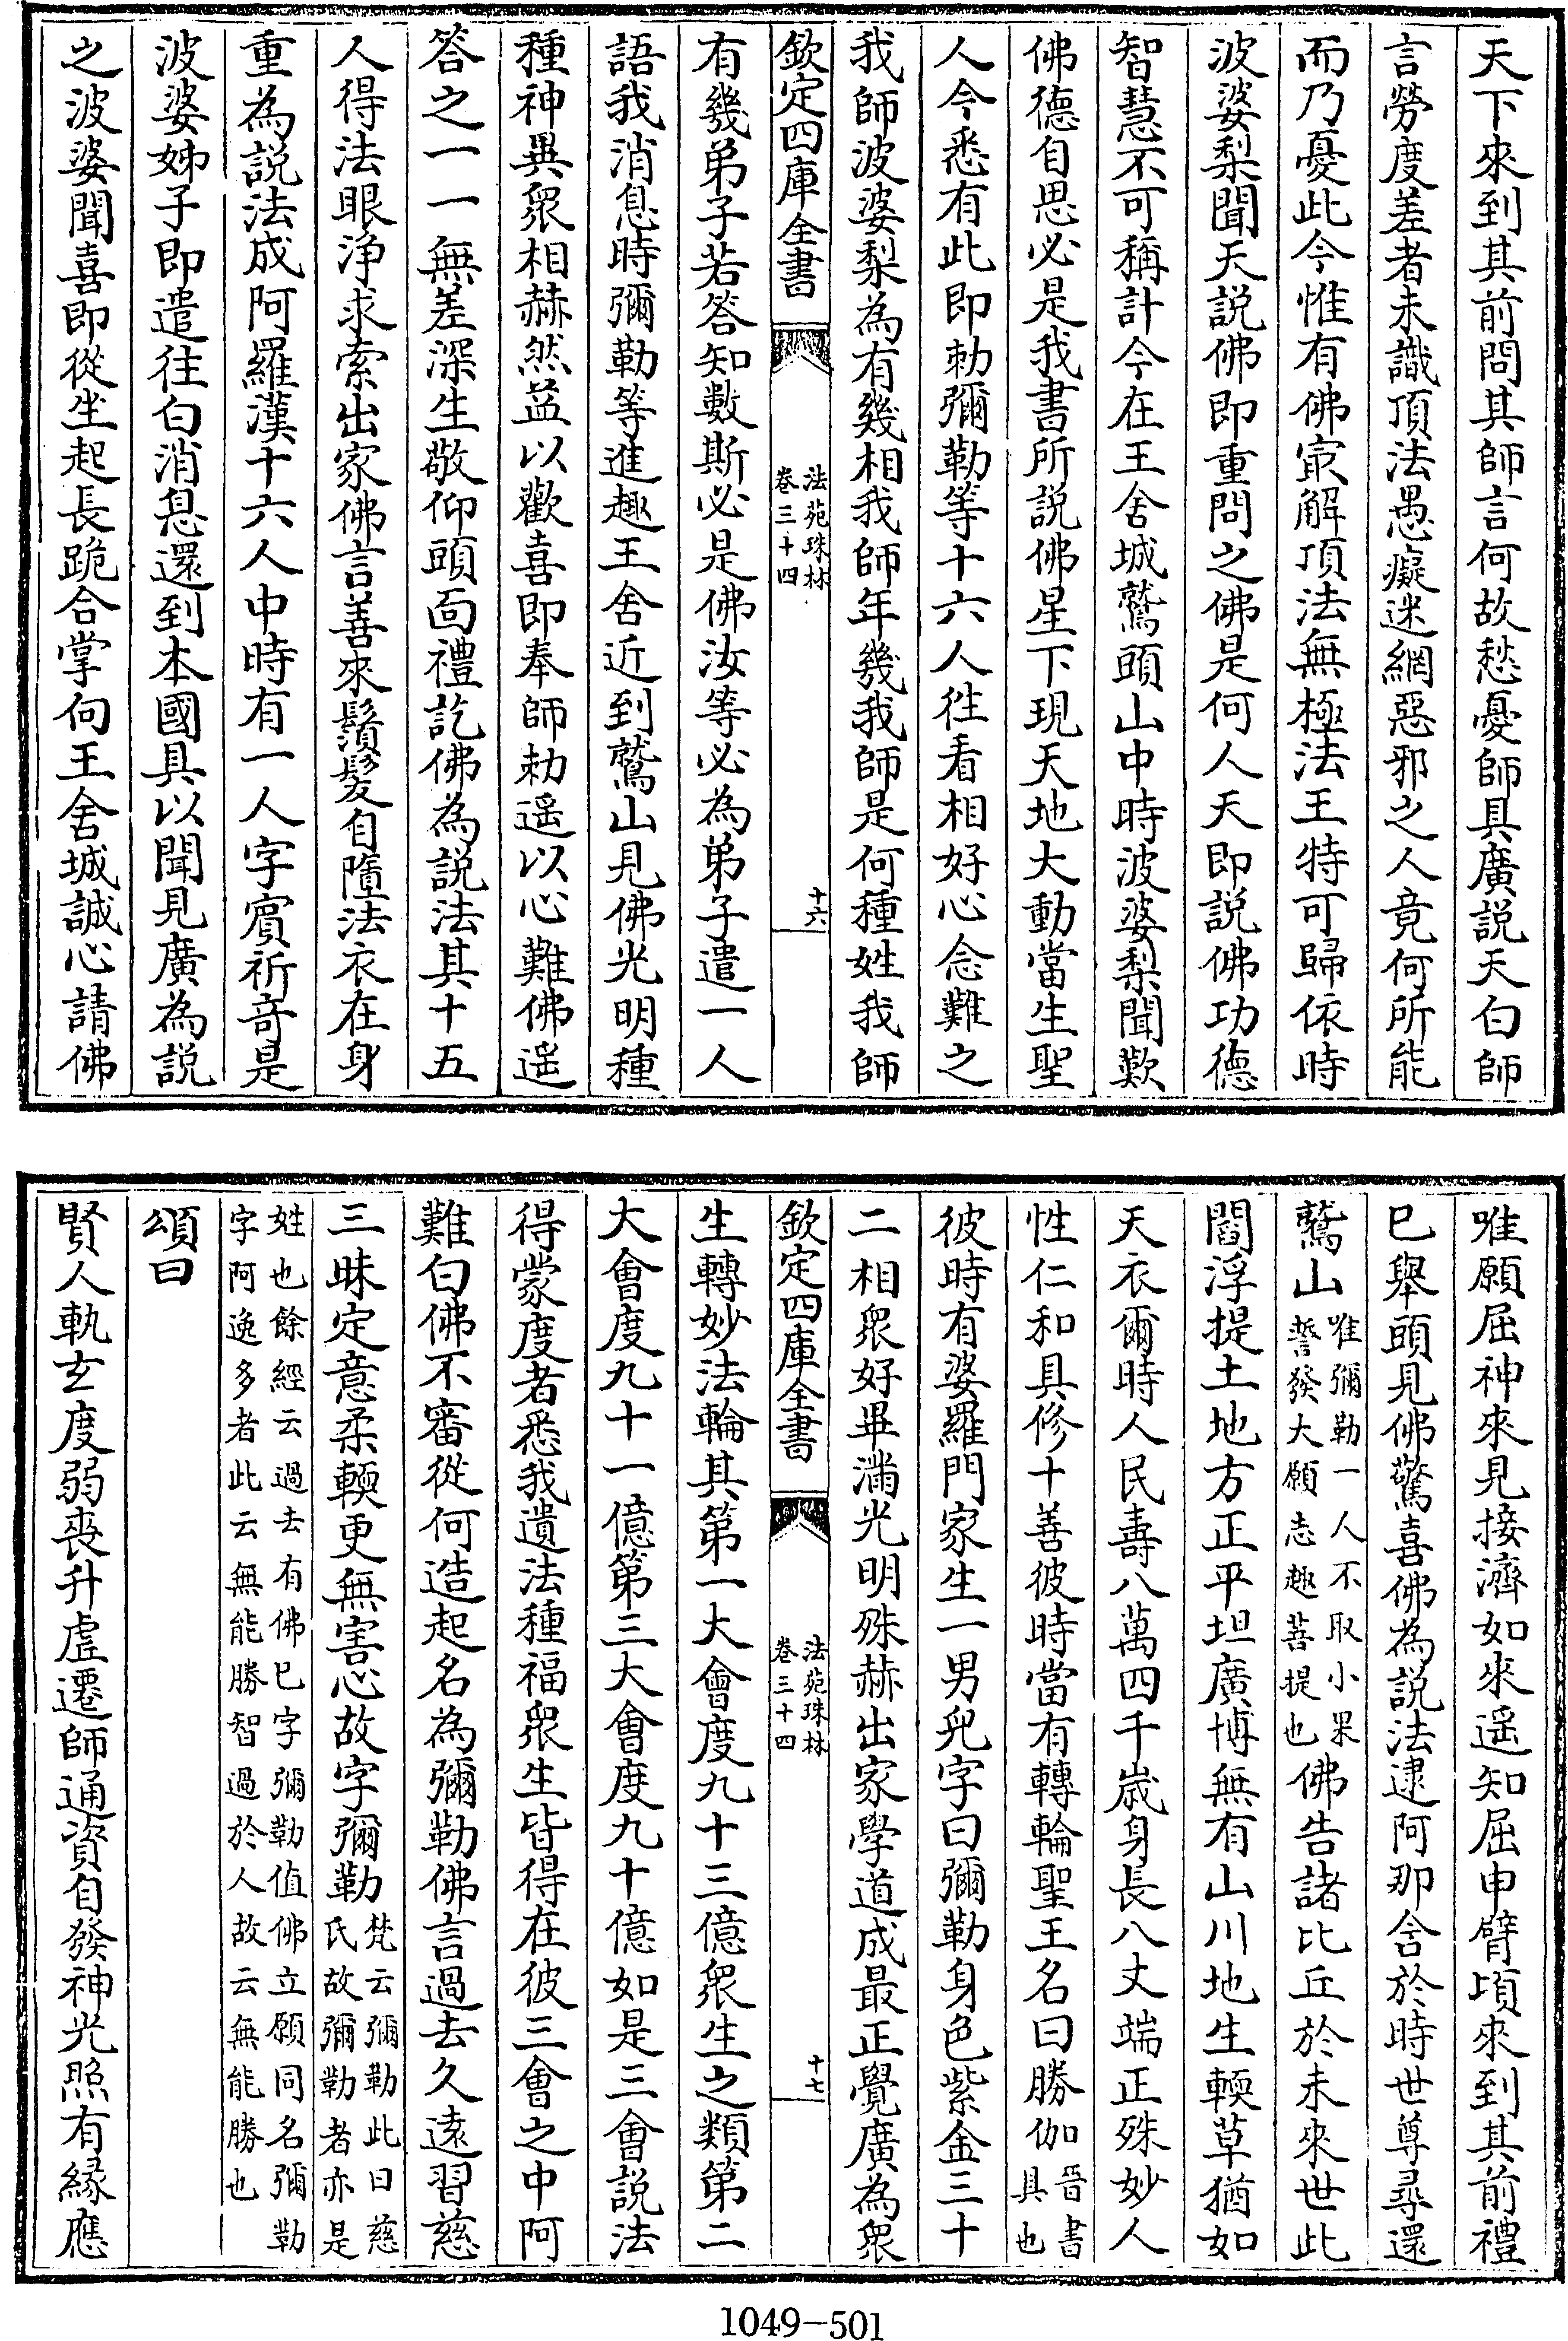 天下來到其前問其師言何故愁憂師具廣説天白師
言勞度差者未識頂法愚癡迷網惡邪之人竟何所能
而乃憂此今惟有佛㝡解頂法無極法王特可歸依時
波婆梨聞天説佛即重問之佛是何人天即説佛功德
智慧不可稱計今在王舍城鷲頭山中時波婆梨聞歎
佛德自思必是我書所説佛星下現天地大動當生聖
人今悉有此即勅彌勒等十六人徃看相好心念難之
我師波婆梨為有幾相我師年幾我師是何種姓我師
欽定四庫全書
法苑珠林
卷三十四
十六
有幾弟子若答知數斯必是佛汝等必為弟子遣一人
語我消息時彌勒等進趣王舍近到鷲山見佛光明種
種神異衆相赫然益以歡喜即奉師勅遥以心難佛遥
答之一一無差深生敬仰頭面禮訖佛為説法其十五
人得法眼浄求索出家佛言善來鬚髮自墮法衣在身
重為説法成阿羅漢十六人中時有一人字賔祈竒是
波婆姊子即遣往白消息還到本國具以聞見廣為説
之波婆聞喜即從坐起長跪合掌向王舍城誠心請佛
唯願屈神來見接濟如來遥知屈申臂頃來到其前禮
已舉頭見佛驚喜佛為説法逮阿那含於時世尊尋還
鷲山唯彌勒一人不取小果誓發大願志趣菩提也佛告諸比丘於未來世此
閻浮提土地方正平坦廣博無有山川地生輭草猶如
天衣爾時人民壽八萬四千歳身長八丈端正殊妙人
性仁和具修十善彼時當有轉輪聖王名曰勝伽晉書具也
彼時有婆羅門家生一男兒字曰彌勒身色紫金三十
二相衆好畢滿光明殊赫出家學道成最正覺廣為衆
欽定四庫全書
法苑珠林
卷三十四
十七
生轉妙法輪其第一大會度九十三億衆生之類第二
大會度九十一億第三大會度九十億如是三會説法
得蒙度者悉我遺法種福衆生皆得在彼三會之中阿
難白佛不審從何造起名為彌勒佛言過去久遠習慈
三昧定意柔輭更無害心故字彌勒梵云彌勒此曰慈氏故彌勒者亦是
姓也餘經云過去有佛已字彌勒值佛立願同名彌勒
字阿逸多者此云無能勝智過於人故云無能勝也
頌曰
賢人軌玄度弱喪升虚遷師通資自發神光照有緣應
1049-501